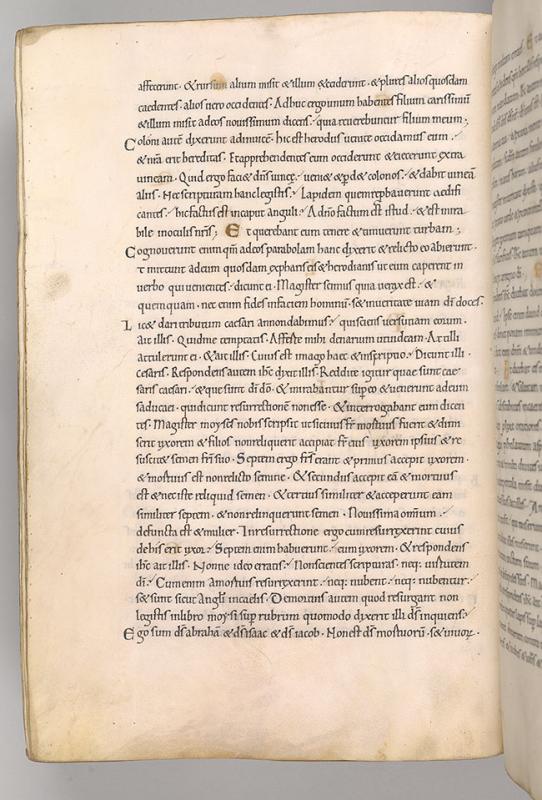 affecerunt · & rursum alium misit & illum occiderunt · & plures alios quosdam
caedentes · alios uero occidentes · Adhuc ergo unum habentes filium carissimũ
& illum misit ad eos nouissimum dicens · quia reuerebuntur filium meum ;
Coloni autẽ dixerunt adinuicẽ · hic est heres uenite occidamus eum ·
& nrã erit hereditas · Et apprehendentes eum occiderunt & eiecerunt extra
uineam · Quid ergo faci& dñs uineę · ueni& & p̃d& colonos · & dabit uineã
aliis · Nec scripturam hanc legistis · Lapidem quem reprobauerunt aedifi
cantes · hic factus est in caput anguli · A dño factum est istud · & est mira
bile in oculis nr̃is ; Et querebant eum tenere & timuerunt turbam ;
Cognouerunt enim qm̃ ad eos parabolam hanc dixerit & relicto eo abierunt ·
t mittunt ad eum quosdam ex phariseis & herodianis ut eum caperent in
uerbo qui uenientes · dicunt ei · Magister scimus quia uerax es · &
quemquam · nec enim uides in faciem hominũ · s& in ueritate uiam di doces ·
Lic& dari tributum caesari an non dabimus · qui sciens uersutiam eorum ·
ait illis · Quid me temptatis · Afferte mihi denarium ut uideam · At illi
attulerunt ei · & ait illis · Cuius est imago haec & inscriptio · Dicunt illi ·
Cesaris · Respondens autem ihc dixit illis · Reddite igitur quae sunt cae
saris caesari · & que sunt di dõ · & mirabantur sup eo & uenerunt ad eum
saducaei · qui dicunt resurrectionẽ non esse · & interrogabant eum dicen
tes · Magister moyses nobis scripsit ut si cuius fr̃ mortuus fuerit & dimi
serit uxorem & filios non reliquerit accipiat fr̃ eius uxorem ipsius & re
suscit& semen fr̃i suo · Septem ergo fr̃s erant & primus accepit uxorem ·
& mortuus est non relicto semine · & secundus accepit eã & mortuus
est & nec iste reliquid semen · & tertius similiter & acceperunt eam
similiter septem · & non relinquerunt semen · Nouissima omnium
defuncta est & mulier · In resurrectione ergo cum resurrexerint cuius
de his erit uxor · Septem enim habuerunt eum uxorem · & respondens
ihc ait illis · Nonne ideo erratis · Non scientes scripturas · neq: uirtutem
di · Cum enim a mortuis resurrexerint · neq: nubent · neq: nubentur ·
s& sunt sicut Angli in caelis · De mortuis autem quod resurgant non
legistis in libro moysi sup rubrum quomodo dixerit illi ds inquiens ·
Ego sum ds abrahã & ds isaac & ds iacob · Non est ds mortuorũ · s& uiuorũ ·